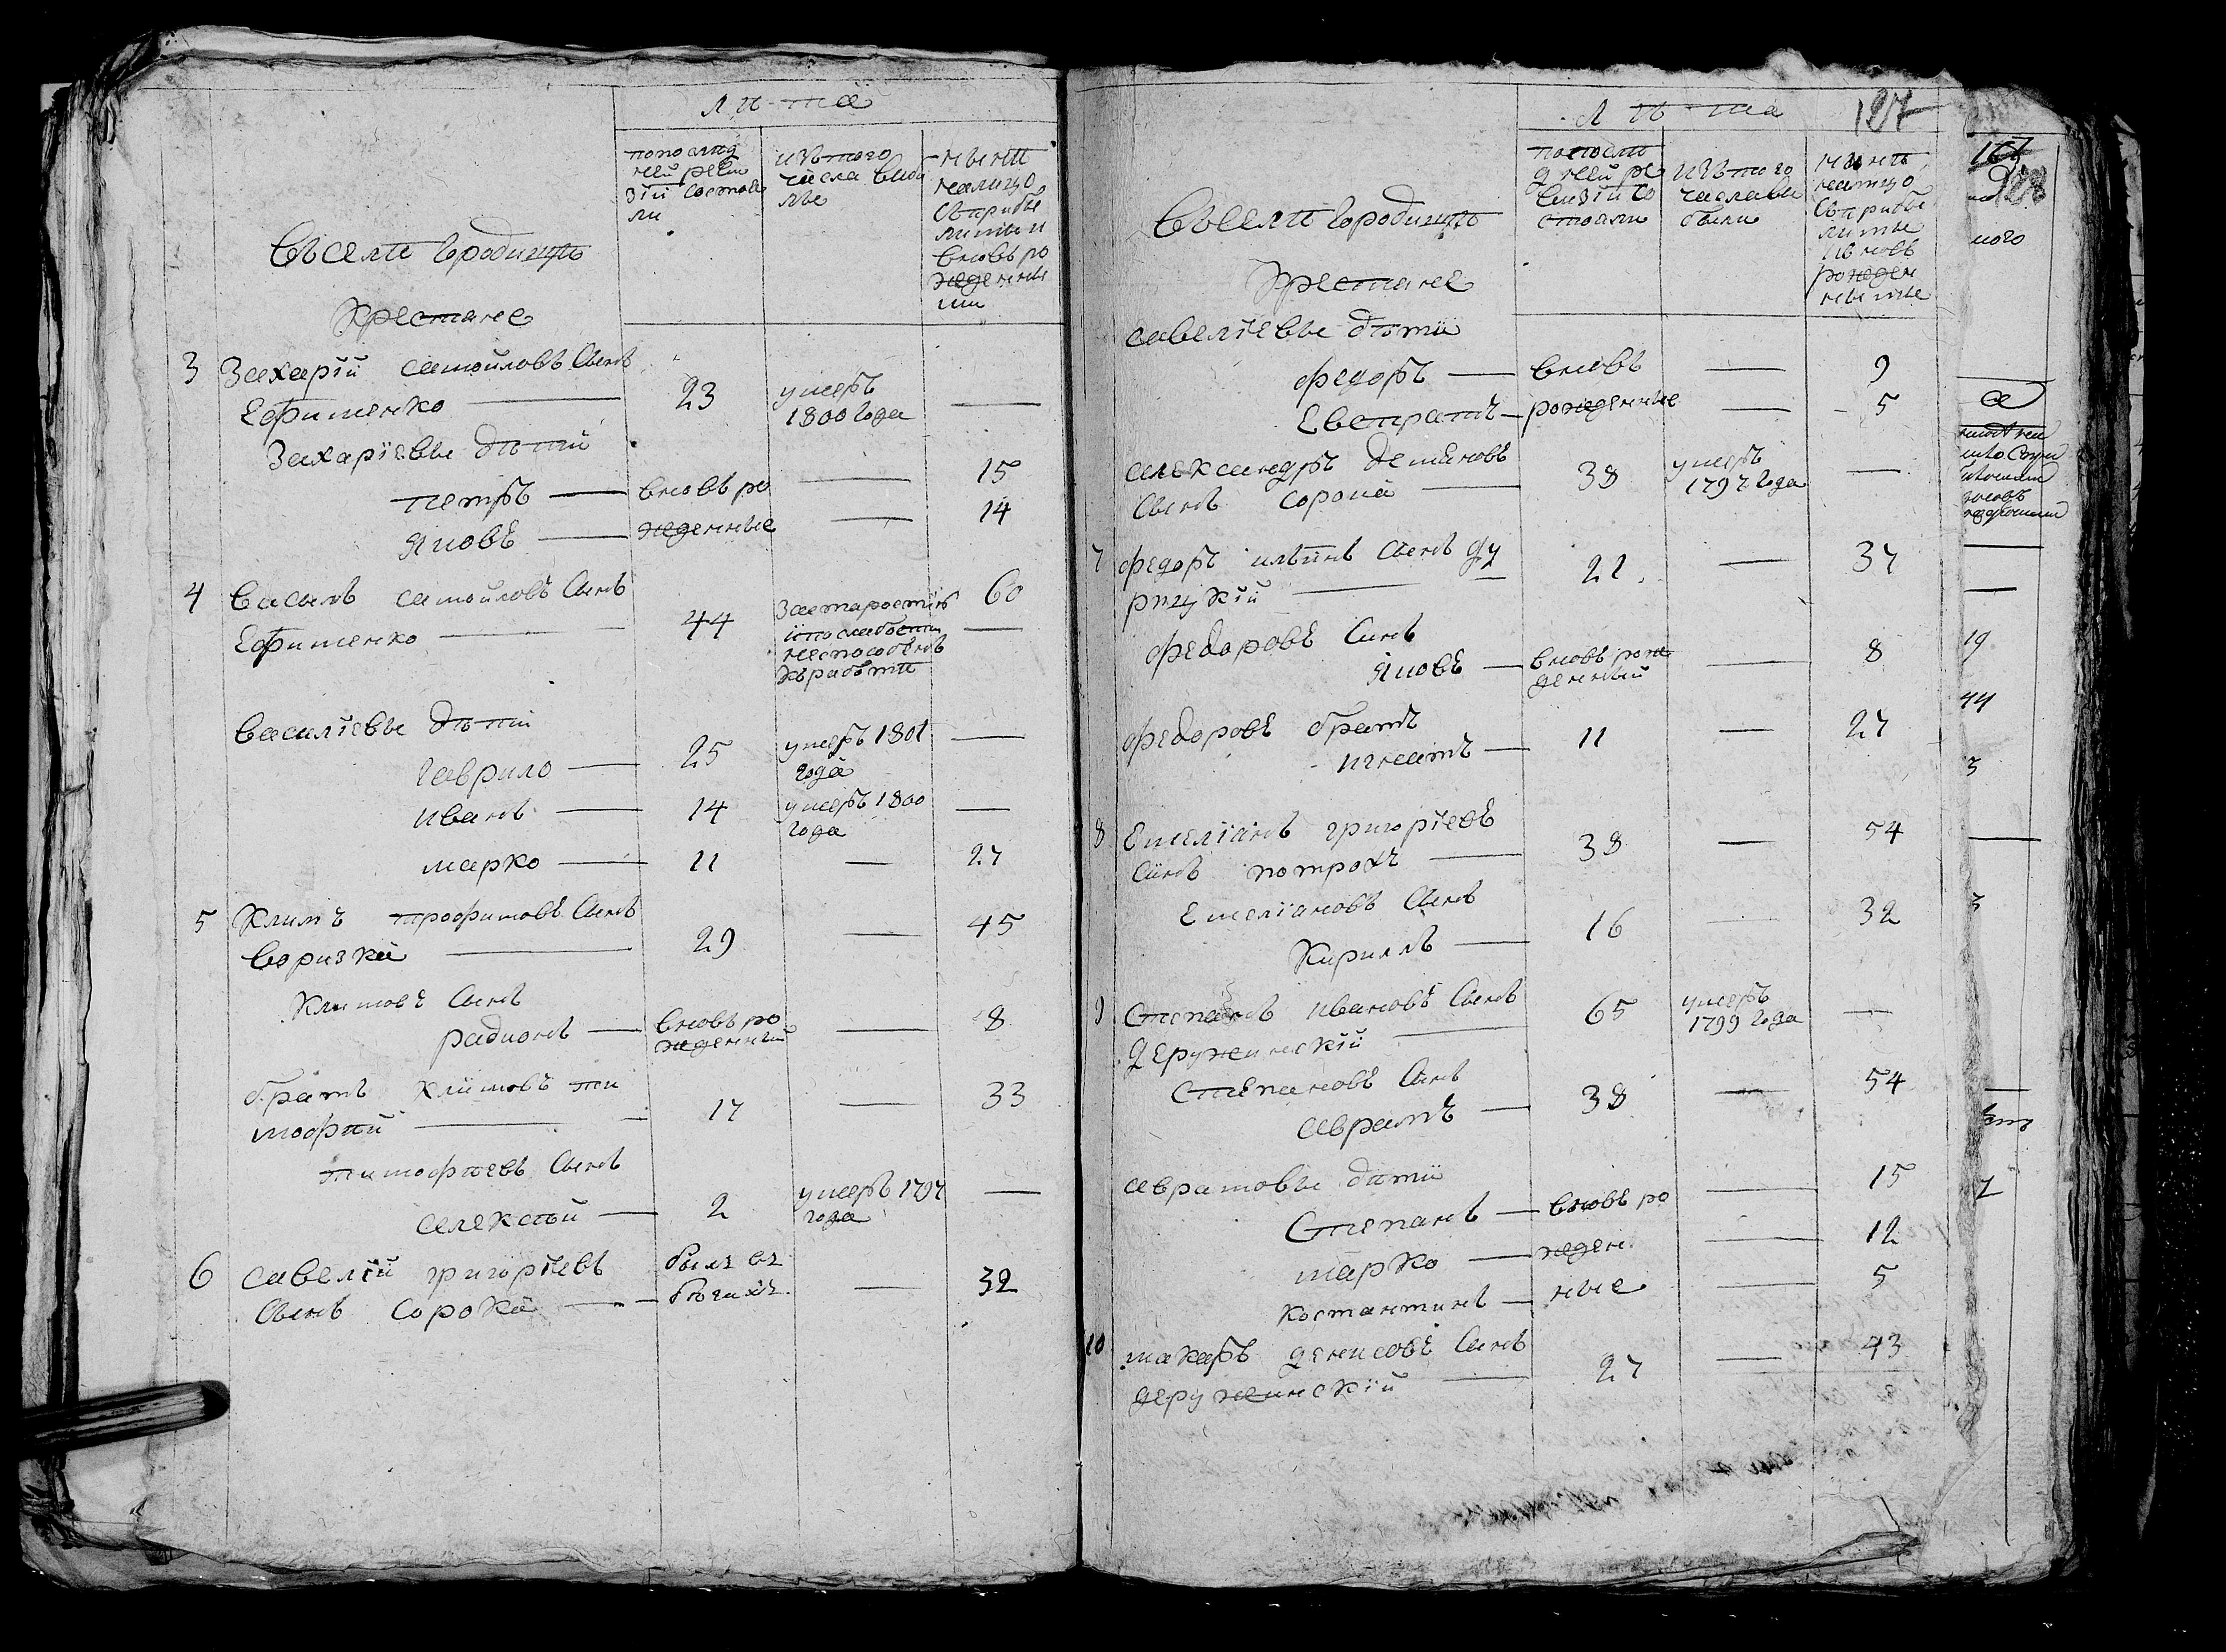 лѣта
попослѣд
ней реви
зіи состоя
ли
изътого
числа выбы
лые
нынѣ
налицо
съприбы
лыми и
вновьро
жденны
ми
Въселѣ городищѣ
Крестяне
3 Захарій самойловъ Сынъ
Ефименко — 23 умеръ
1800 года —
Захаріевы дѣти
петръ — вновь ро — 15
яковъ — жденные — 14
4 Василь самойловъ Сынъ
Ефименко — 44 Застаростію 60
ипослабости —
неспособенъ
кърабѣтѣ
Василіевы дѣти
гаврило — 25 умеръ 1801 —
года
иванъ — 14 умеръ 1800 —
года
марко — 11 — 27
5 Климъ трофимовъ Сынъ
Воризка — 29 — 45
Климовъ Сынъ
радионъ — вновь ро — 8
жденный
братъ климовъ ти
мофѣй — 17 — 33
тимофѣевъ Сынъ
алексѣй — 2 умеръ 1797 —
года
6 савелій григоріевъ былъ въ
Сынъ Сорока — бѣгахъ — 32
лѣта 127
попослѣ
дней ре
визіи со
стояли
изътого
числавы
были
нынѣ
налицо
съприбы
лыми
ивновь
рожден
ными
Въселѣ городищѣ
Крестяне
савеліевы дѣти
федоръ — вновь — 9
Евстратъ — рожденные — 5
александръ демяновъ
Сынъ сорока — 38 умеръ
1797 года —
7 федоръ ильинъ Сынъ ду
рицкій — 21 — 37
федоровъ Синъ
яковъ — вновь рож — 8
денный
федоровъ братъ
игнатъ — 11 — 27
8 Емеліянъ григоріевъ
Синъ потрохъ — 38 — 54
Емеліяновъ Сынъ
Кирилъ — 16 — 32
9 Степанъ ивановъ Сынъ
деружинскій — 65 умеръ
1799 года —
Степановъ Синъ
аврамъ — 38 — 54
аврамовы дѣти
Степанъ — вновь ро — 15
марко — жден — 12
костантинъ — ные — 5
10 макаръ денисовъ Сынъ
деружинскій — 27 — 43
ного
19
44
3
3